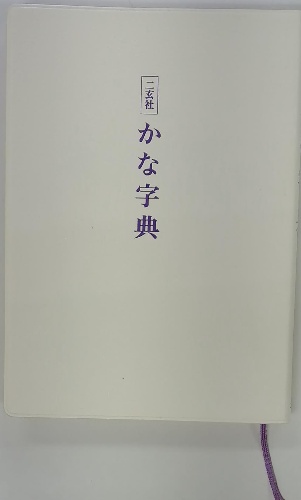 二玄社
かな字典